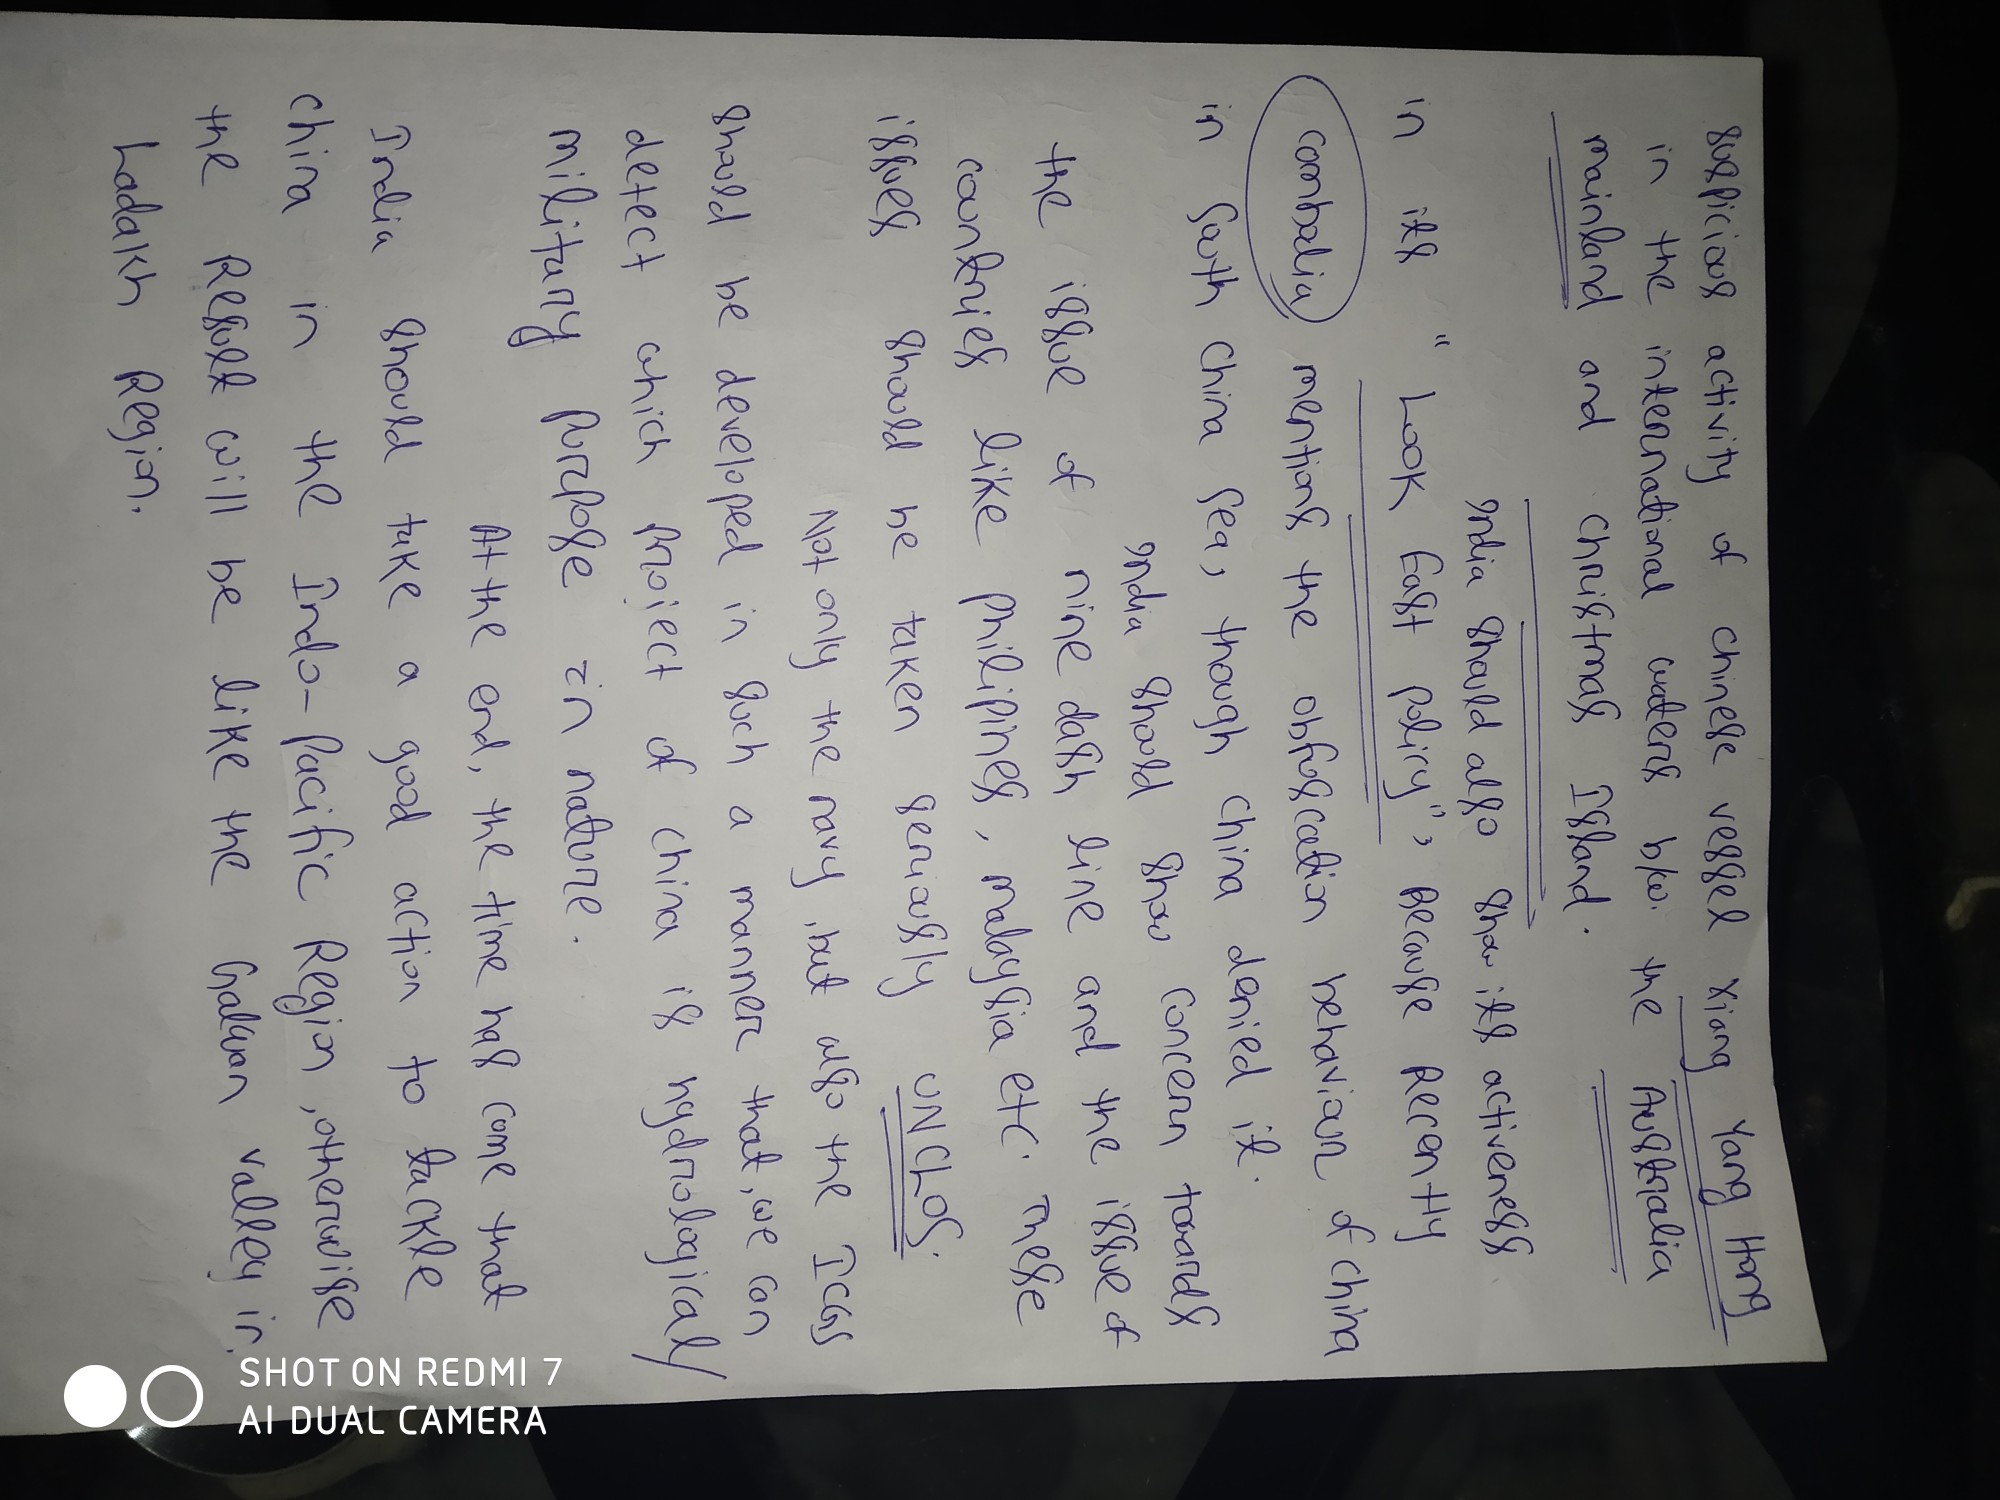 suspicious activity of chinese vessel Xiang Yang Hong
in the international waters b/w. the Australia
mainland and christmas Island.
India should also show its activeness
in its "Look East policy", Because Recently
combodia mentions the obfuscation behaviour of china
in South china sea, though china denied it.
India should show concern towards
the issue of nine dash line and the issue of
countries like philipines, malaysia etc. These
issues should be taken seriously UNCLOS.
Not only the navy, but also the ICGS
should be developed in such a manner that, we can
detect which project of china is hydrological/
military purpose in nature.
At the end, the time has come that
India should take a good action to tackle
china in the Indo-Pacific Region, otherwise
the Result will be like the Galwan valley in
Ladakh Region.
SHOT ON REDMI 7
AI DUAL CAMERA